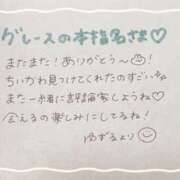 グレースの本指名さま♡
またまた！ありがとう〜！
ちいかわ見つけてくれたのすごいね
また一緒に言論家しようね♡
会えるの楽しみにしてるね！
ゆずるより